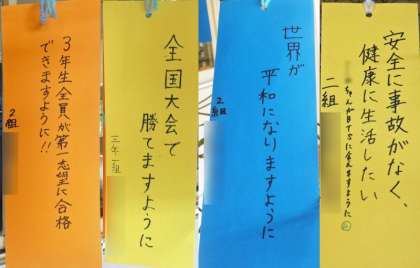 3年生全員が第一志望に合格
できますように!!
2組
全国大会で
勝てますように
三年一組
世界が
平和になりますように
2組
安全に事故がなく、
健康に生活したい
ちゃんが会えますように
二組